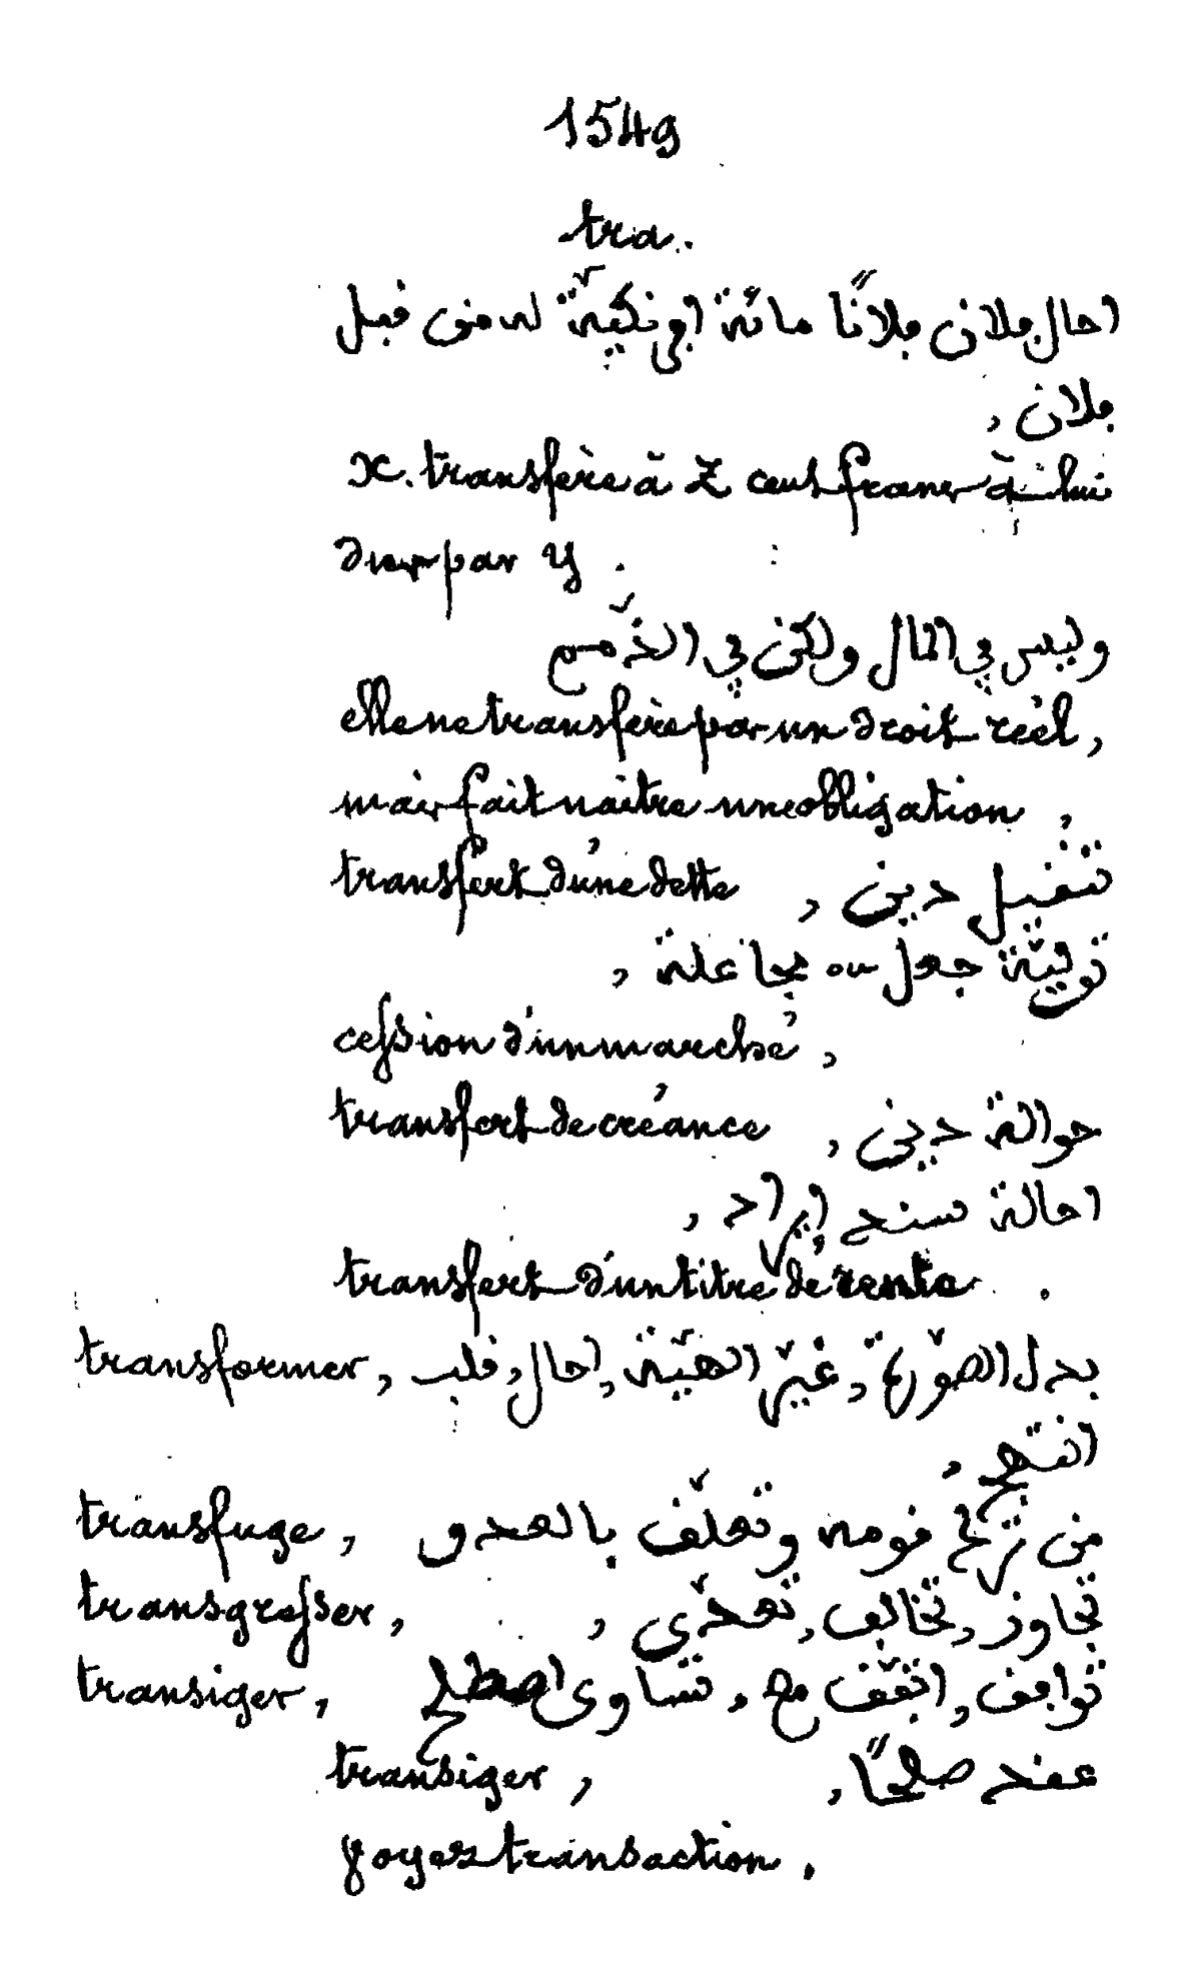 1549
tra.
احال فلان فلانًا مائة افرنكيّة له من قبل
فلان ,
x. transfère à Z cent francs à lui
dus par y .
وليس في المال ولكن في الذّمم
elle ne transfère pas un droit réel,
mais fait naître une obligation ,
transfert d'une dette , تنقيل دين
توليّة جعل ou مجاعلة ,
cession d'un marché ,
transfert de créance , حوالة دين
احالة سند ايراد ,
transfert d'un titre de rente .
transformer, بدل الصّورة, غيّر الهيّة, احال, قلب
transfuge, من ترك قومه وتعلّق بالعدو
transgresser, تجاوز, تخالف, تعدّى ,
transiger, توافق, اتّفق مع, تساوى اصطلح
transiger, عقد صلحًا,
voyez transaction .